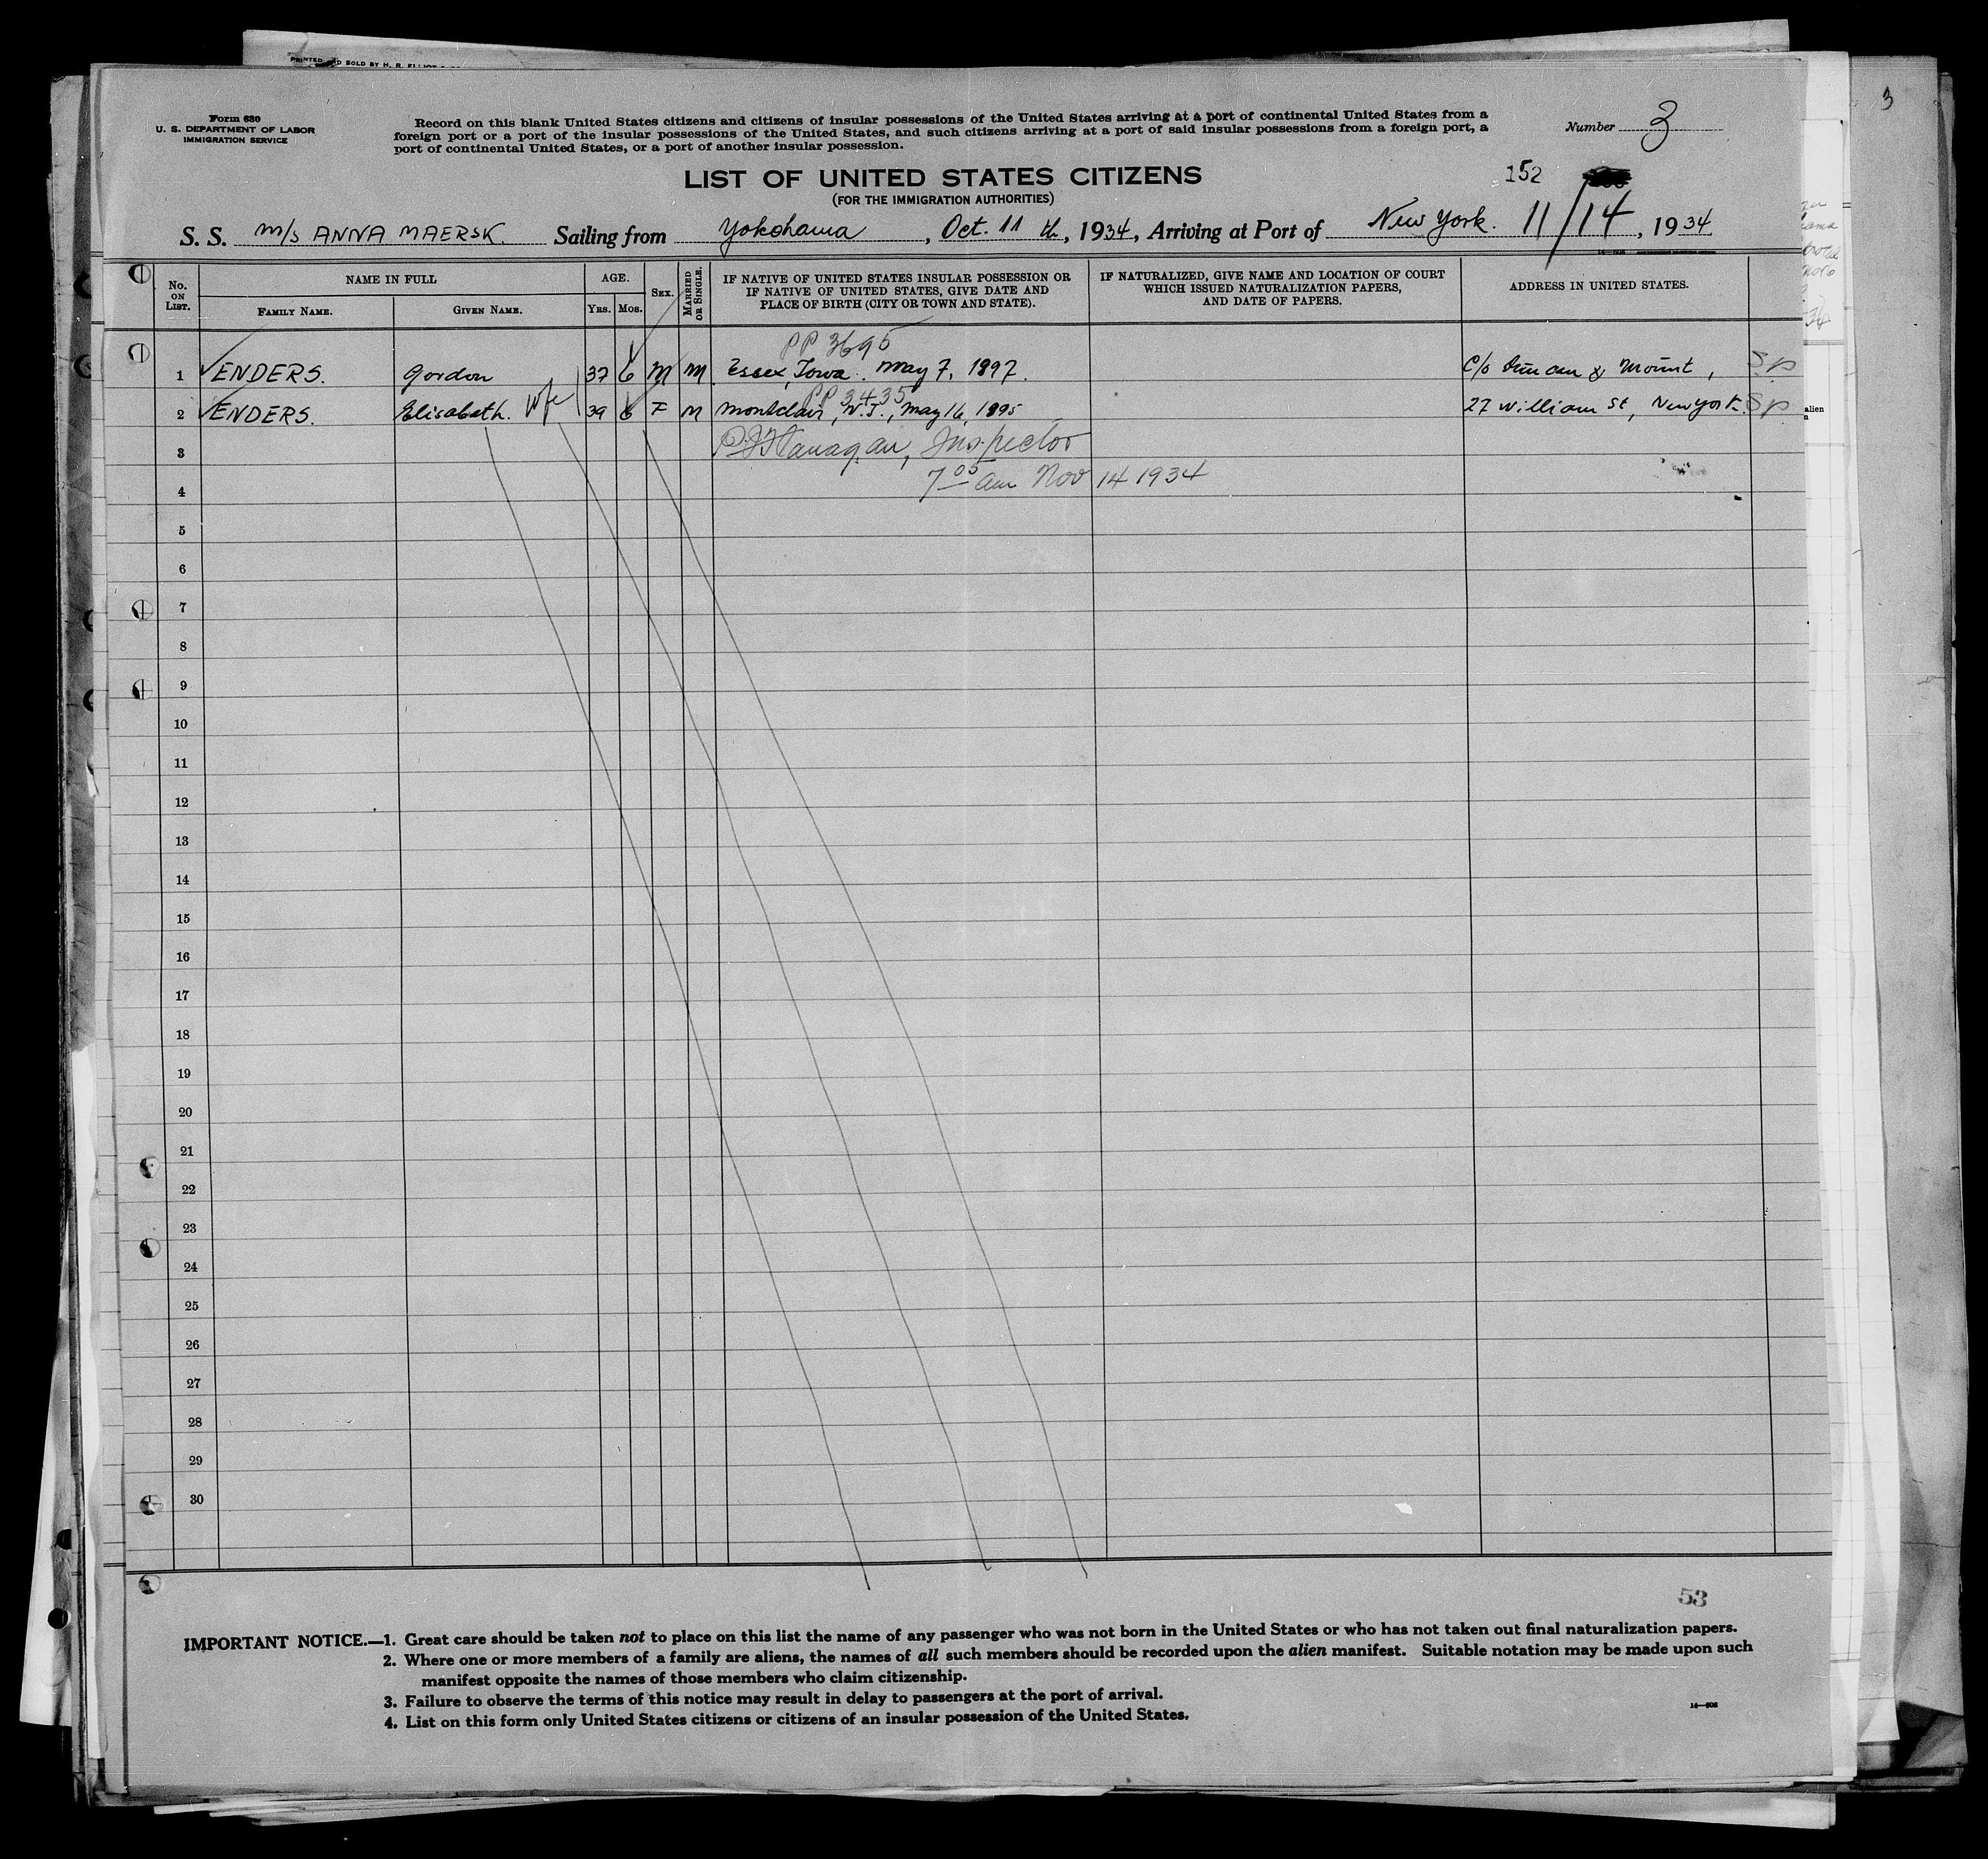 PRINTED AND SOLD BY H. R. ELLIOT
3
Form 630
U. S. DEPARTMENT OF LABOR
IMMIGRATION SERVICE
Record on this blank United States citizens and citizens of insular possessions of the United States arriving at a port of continental United States from a
foreign port or a port of the insular possessions of the United States, and such citizens arriving at a port of said insular possessions from a foreign port, a
port of continental United States, or a port of another insular possession.
Number 3
LIST OF UNITED STATES CITIZENS
152
(FOR THE IMMIGRATION AUTHORITIES)
S. S. M/S ANNA MAERSK. Sailing from Yokohama, Oct. 11 th, 1934, Arriving at Port of New York. 11/14, 1934
No. ON LIST.
NAME IN FULL
FAMILY NAME.
GIVEN NAME.
AGE.
YRS.
MOS.
SEX.
MARRIED OR SINGLE.
IF NATIVE OF UNITED STATES INSULAR POSSESSION OR
IF NATIVE OF UNITED STATES, GIVE DATE AND
PLACE OF BIRTH (CITY OR TOWN AND STATE).
IF NATURALIZED, GIVE NAME AND LOCATION OF COURT
WHICH ISSUED NATURALIZATION PAPERS,
AND DATE OF PAPERS.
ADDRESS IN UNITED STATES.
PP 3695
1 ENDERS. Gordon 37 6 M M Essex, Iowa. May 7, 1897. C/o Duncan & Mount, S.p
PP 3435
2 ENDERS. Elisabeth. wfe 39 6 F M Montclair, N.J., May 16, 1895 27 William St, New York. S.p.
3 P.J. Flanagan, Inspector
4 7 05 am Nov 14 1934
5
6
7
8
9
10
11
12
13
14
15
16
17
18
19
20
21
22
23
24
25
26
27
28
29
30
53
IMPORTANT NOTICE.—1. Great care should be taken not to place on this list the name of any passenger who was not born in the United States or who has not taken out final naturalization papers.
2. Where one or more members of a family are aliens, the names of all such members should be recorded upon the alien manifest. Suitable notation may be made upon such
manifest opposite the names of those members who claim citizenship.
3. Failure to observe the terms of this notice may result in delay to passengers at the port of arrival.
4. List on this form only United States citizens or citizens of an insular possession of the United States.